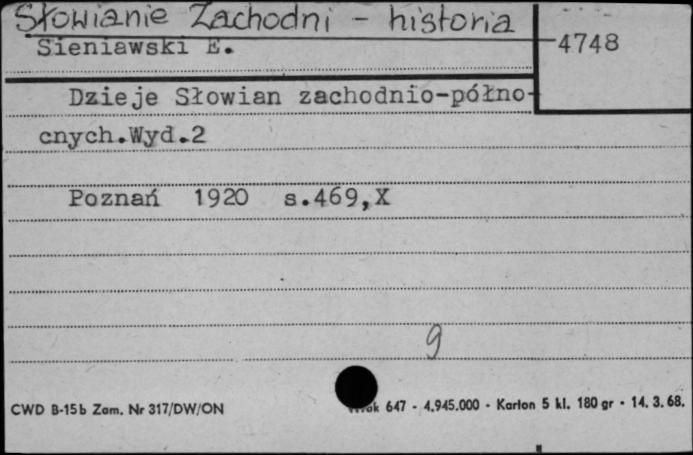 Słowianie Zachodni - historia
Sieniawski E.
4748
Dzieje Słowian zachodnio-półno-
cnych.Wyd.2
Poznań 1920 s.469,X
9
CWD B-15b Zam. Nr 317/DW/ON
647 - 4.945.000 - Karton 5 kl. 180 gr - 14. 3. 68.